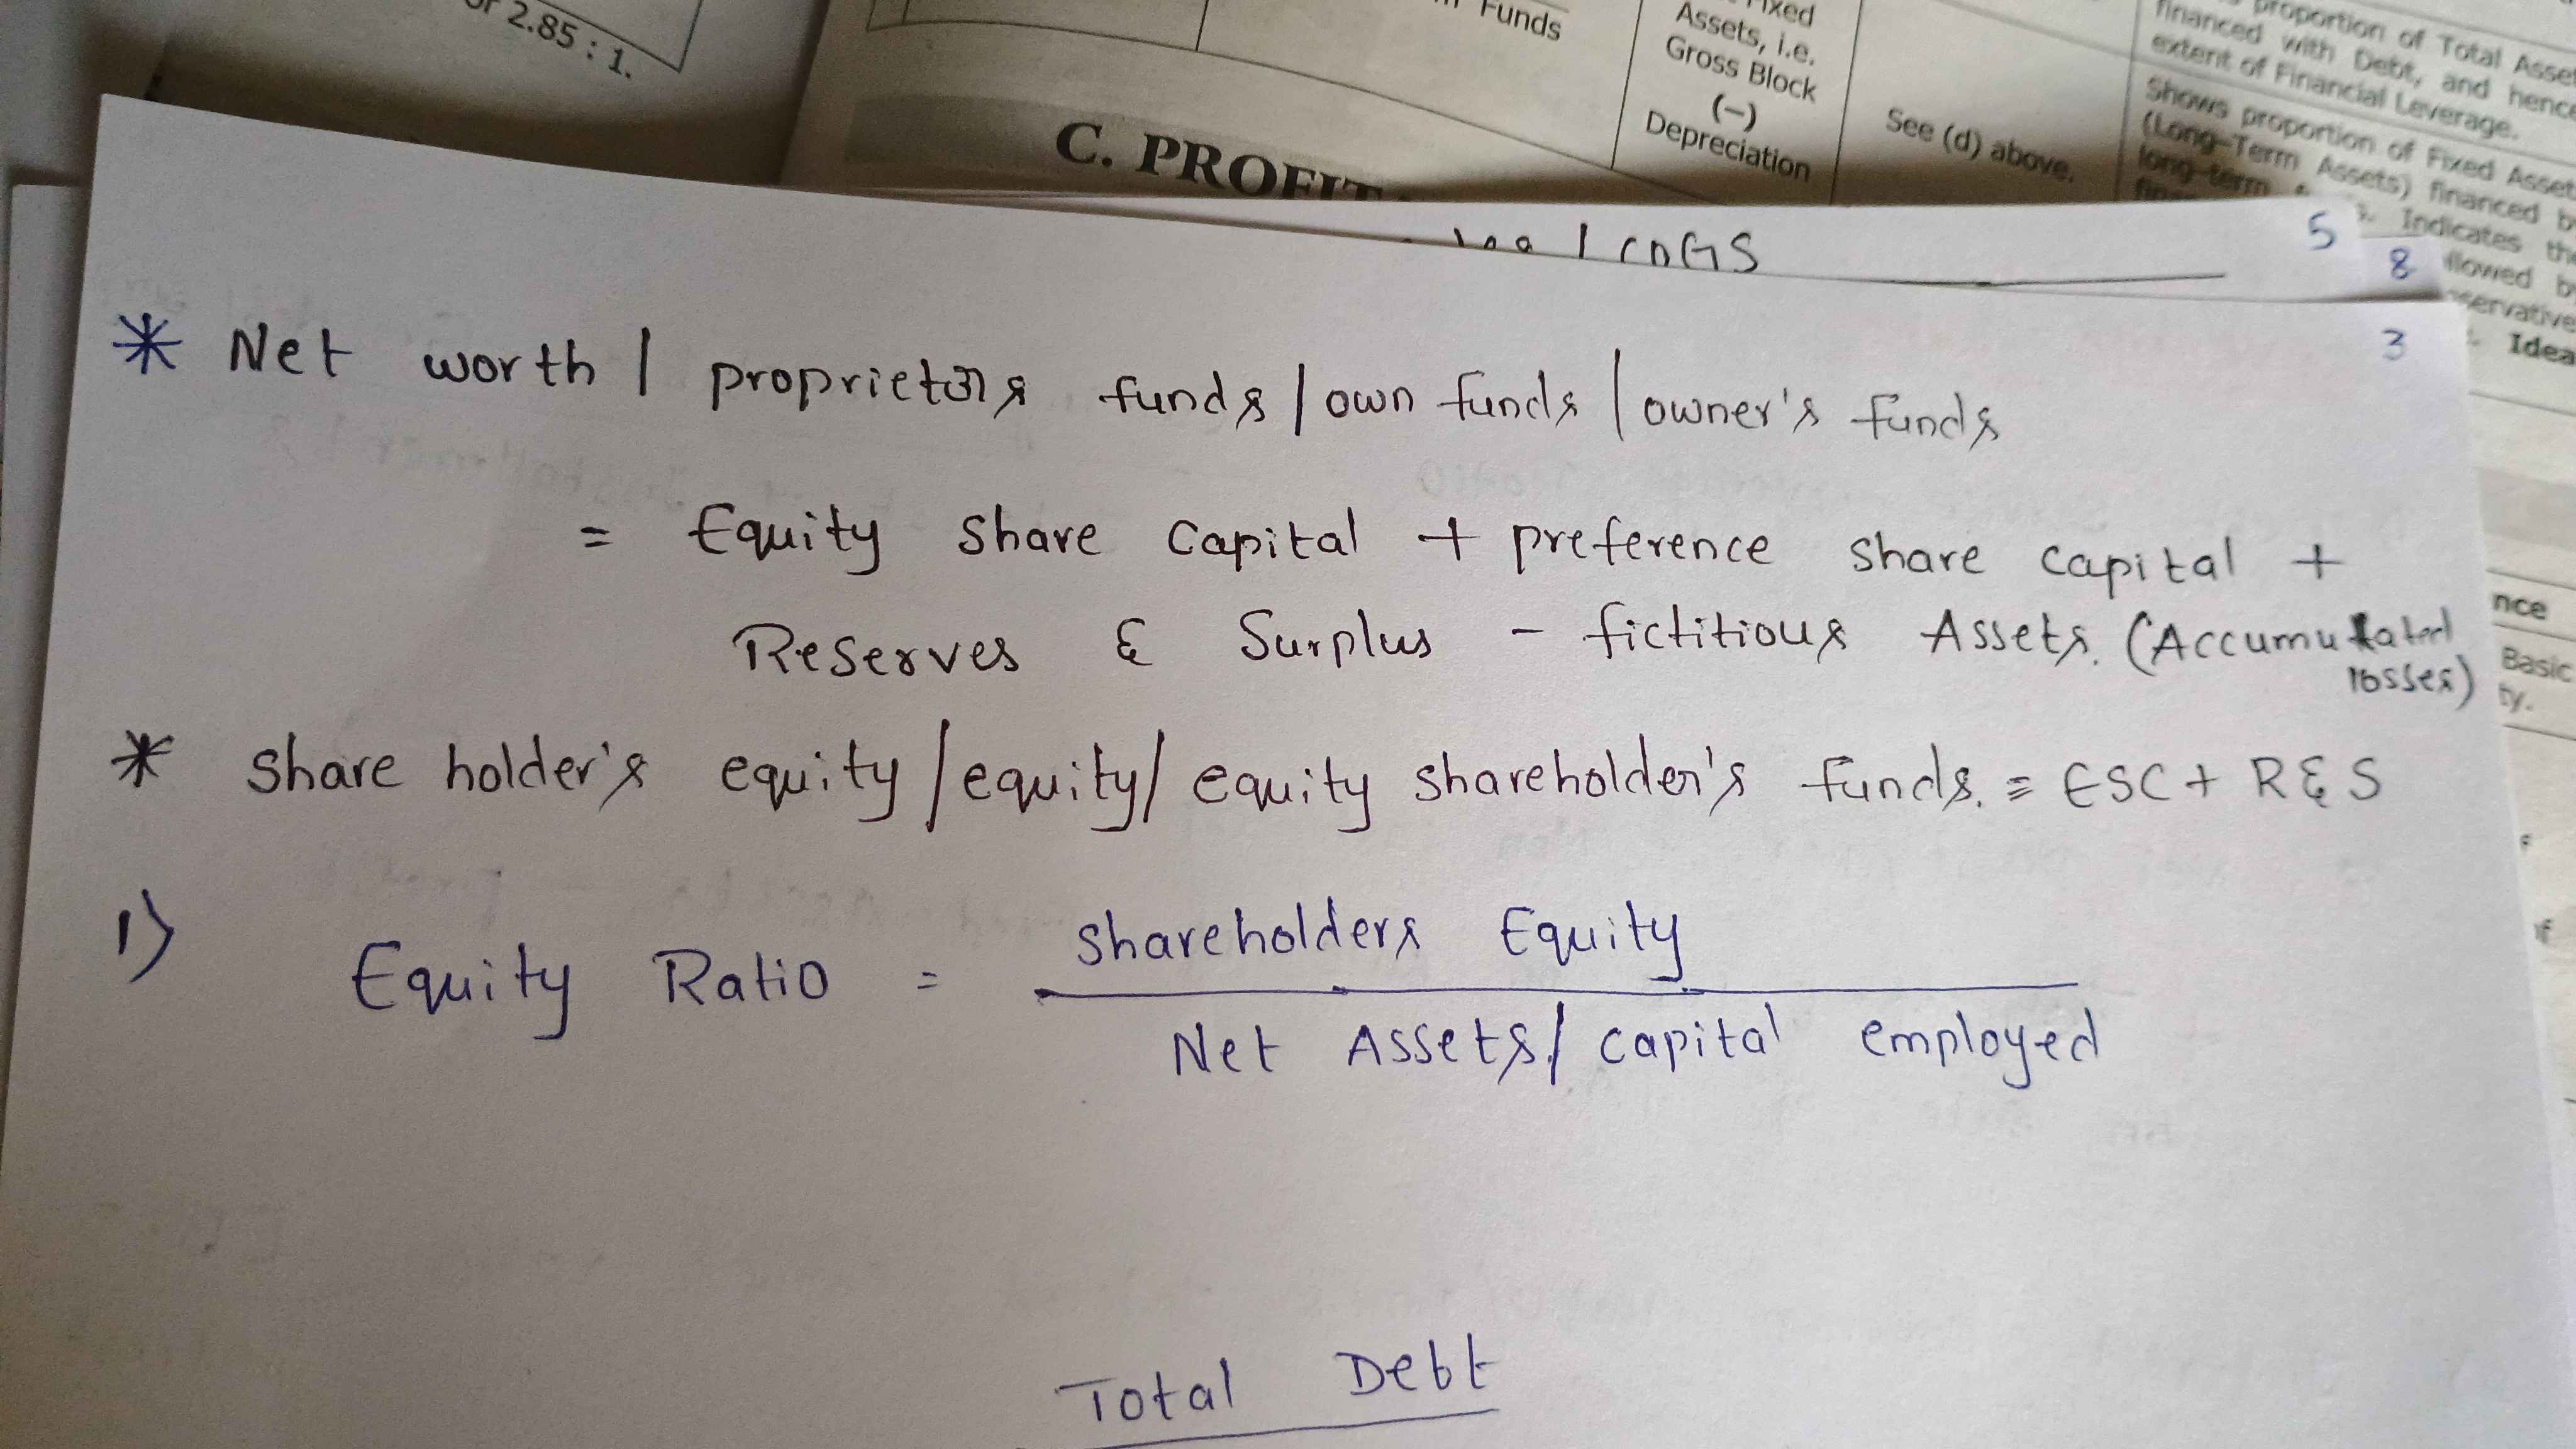 or 2.85 : 1.
Funds
Fixed
Assets, i.e.
Gross Block
(–)
Depreciation
See (d) above.
proportion of Total Asse
financed with Debt, and henc
extent of Financial Leverage.
Shows proportion of Fixed Asset
(Long-Term Assets) financed b
long-term
Indicates the
llowed b
servative
Idea
C. PROFIT
COGS
5
8
3
* Net worth / proprietors funds / own funds / owner's funds
= Equity share capital + preference share capital +
Reserves & Surplus - fictitious Assets. (Accumulated
losses)
* share holder's equity / equity / equity shareholder's funds. = ESC + R & S
1) Equity Ratio = shareholders Equity
Net Assets / capital employed
Total Debt
nce
Basic
ty.